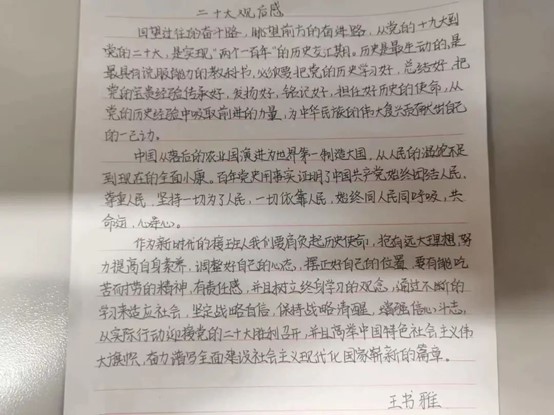 二十大观后感
回望过往的奋斗路，眺望前方的奋进路，从党的十九大到
党的二十大，是实现“两个一百年”的历史交汇期。历史是最生动的，是
最具有说服能力的教科书，必须要把党的历史学习好，总结好，把
党的宝贵经验传承好，发扬好，铭记好，担任好历史的使命，从
党的历史经验中吸取前进的力量，为中华民族的伟大复兴贡献出自己
的一己力。
中国从落后的农业国演进为世界第一制造大国，从人民的温饱不足
到现在的全面小康。百年党史用事实证明了中国共产党始终团结人民，
尊重人民，坚持一切为了人民，一切依靠人民，始终同人民同呼吸，共
命运，心连心。
作为新时代的接班人我们要肩负起历史使命，抱有远大理想，努
力提高自身素养，调整好自己的心态，摆正好自己的位置，要有能吃
苦耐劳的精神，有责任感，并且树立终身学习的观念，通过不断的
学习来造友社会，坚定战略自信，保持战略清醒，增强信心斗志，
从实际行动迎接党的二十大胜利召开，并且高举中国特色社会主义伟
大旗帜，奋力谱写全面建设社会主义现代化国家崭新的篇章。
王书雅